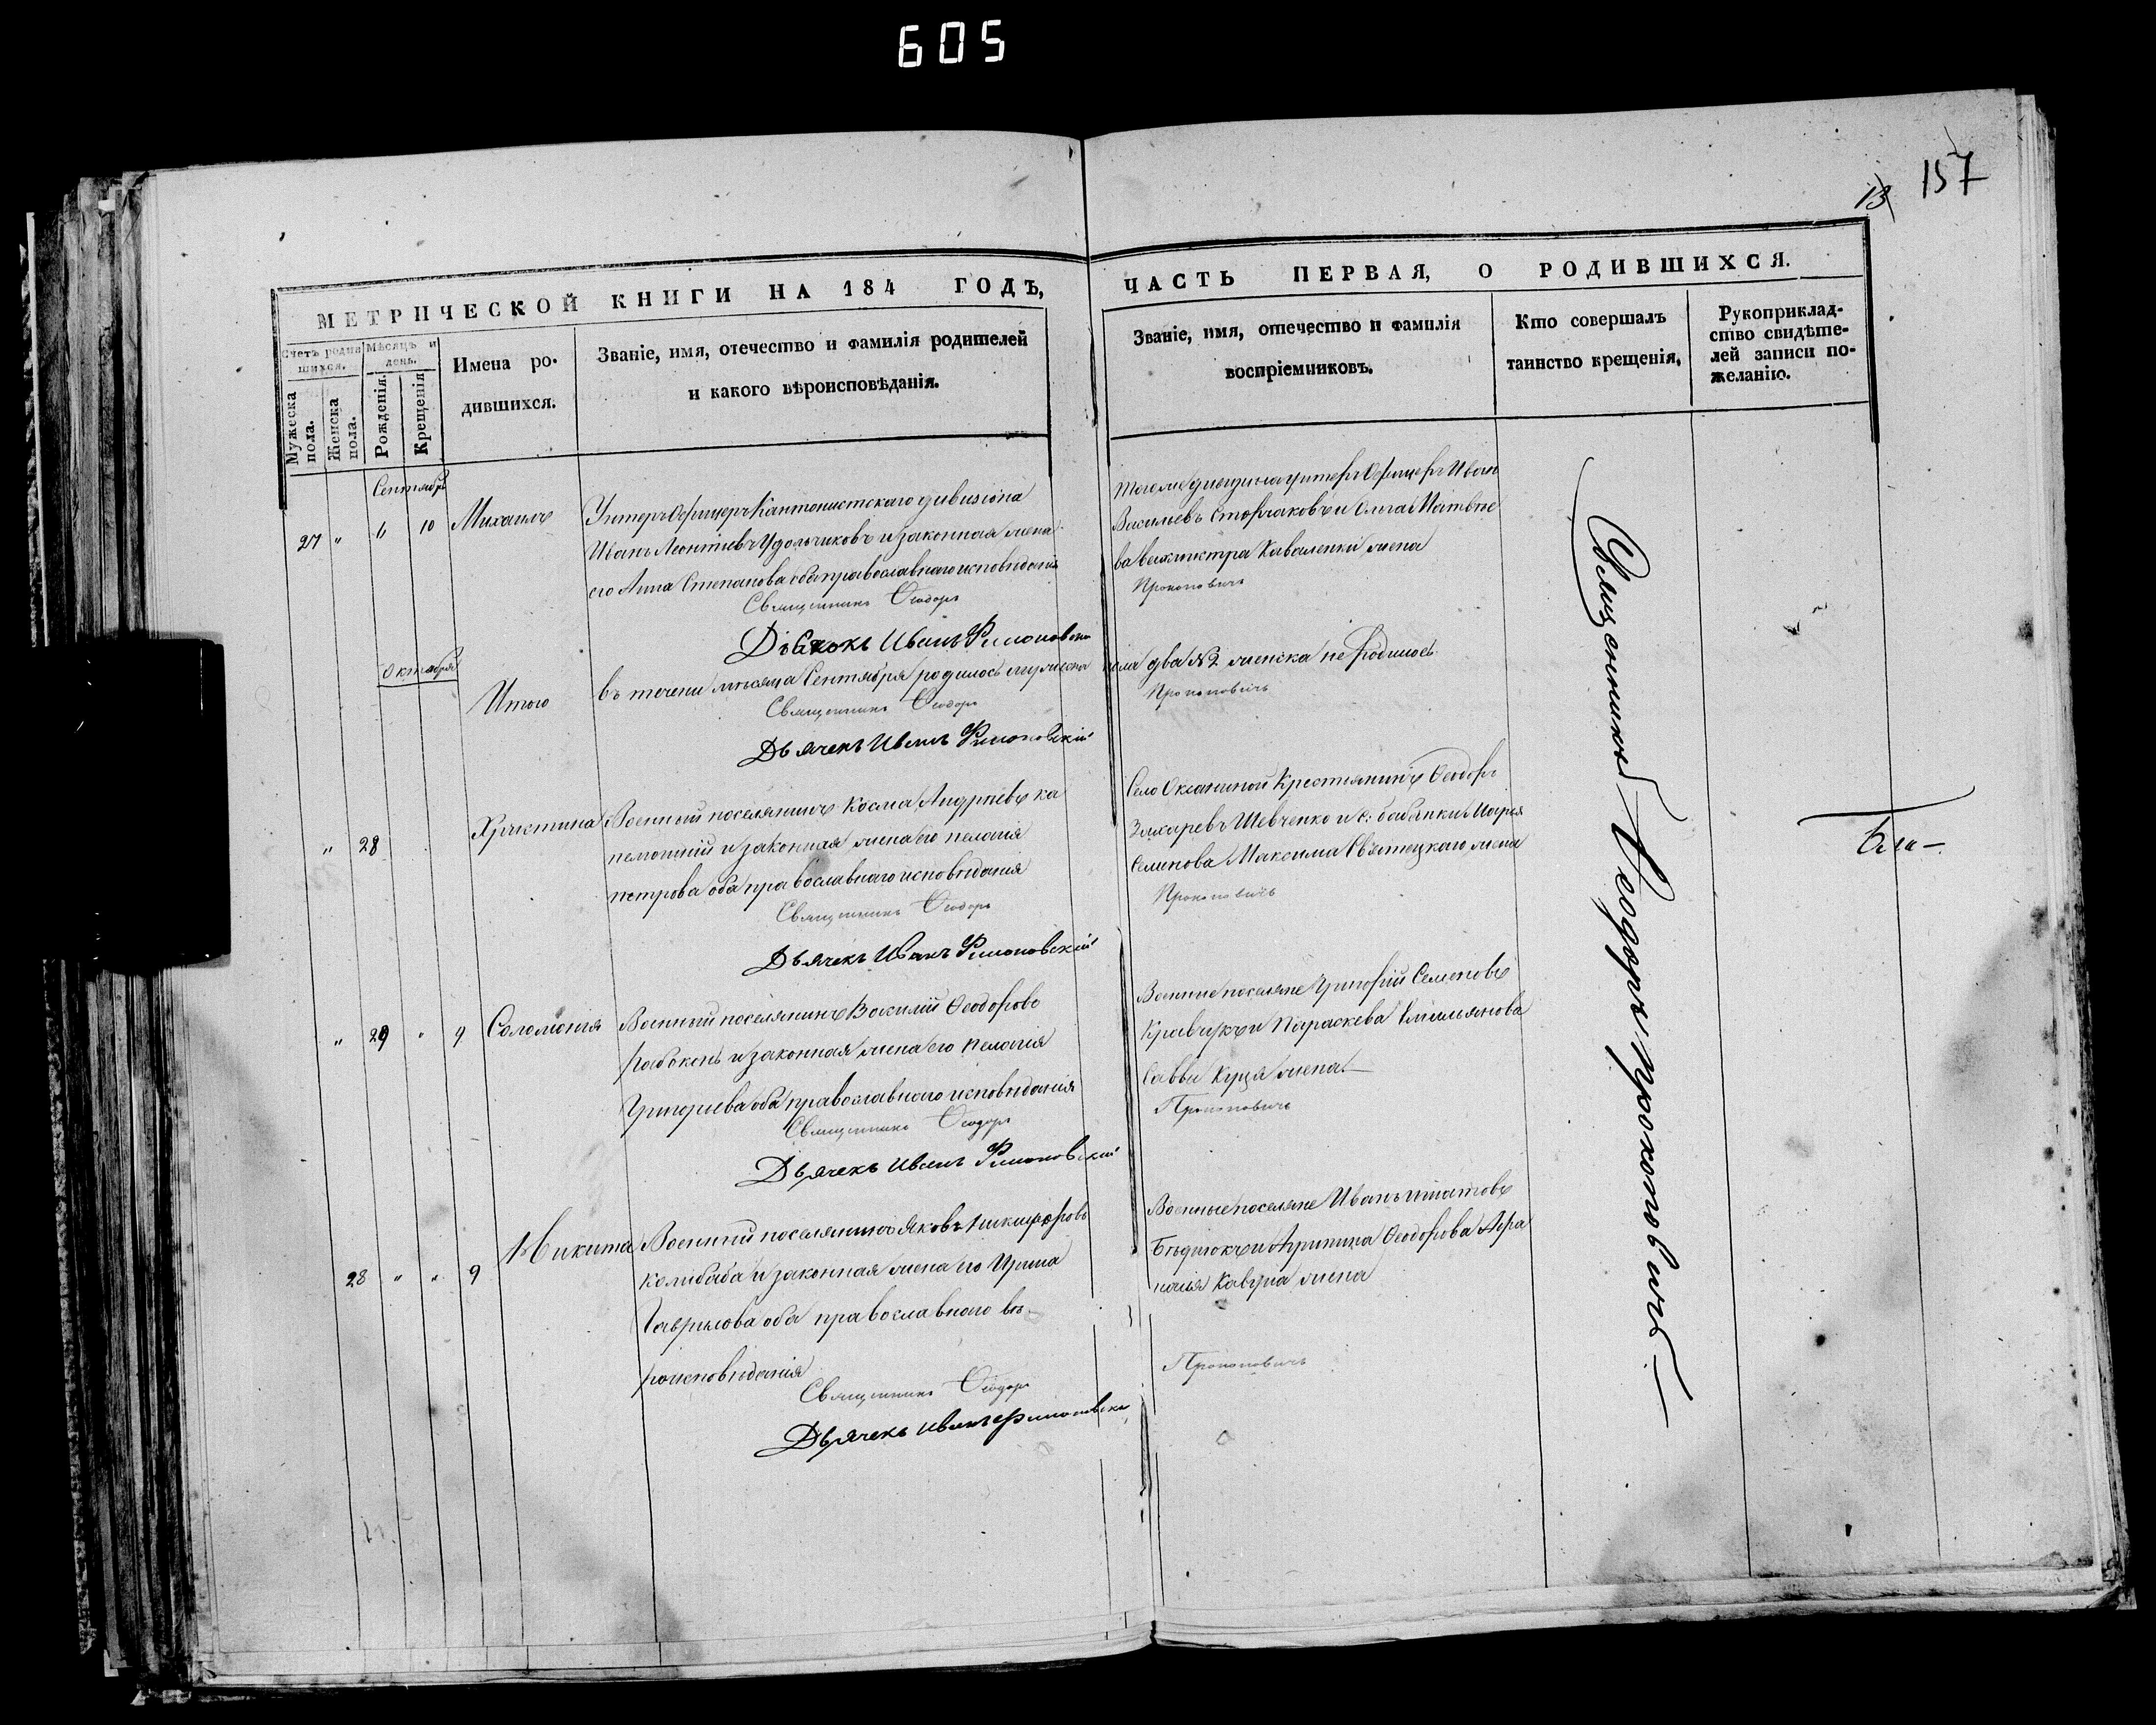 605
157
13
МЕТРИЧЕСКОЙ КНИГИ НА 184 ГОДЪ,
ЧАСТЬ ПЕРВАЯ, О РОДИВШИХСЯ.
Счетъ родив
шихся.
Мужеска пола.
Женска пола.
Мѣсяцъ и
день.
Рожденія.
Крещенія
Имена ро-
дившихся.
Званіе, имя, отечество и фамилія родителей
и какого вѣроисповѣданія.
Званіе, имя, отечество и фамилія
воспріемниковъ.
Кто совершалъ
таинство крещенія,
Рукоприклад-
ство свидѣте-
лей записи по-
желанію.
Сентябрь
27 " 6 10 Михаилъ
Унтеръ Офицеръ Кантонистскаго дивизіона
Иванъ Леонтіевъ и законная жена
его Анна Степанова оба православнаго исповѣданія
Священникъ Ѳеодоръ
Дьячокъ Иванъ
унтеръ Офицеръ Иванъ
Васильевъ и Ольга Матвѣе
ва вахмистра Коваленки жена
Прокоповичъ
Октября
Итого
въ течени мѣсяца Сентября родилось мужеска
пола два №2 женска не родилось
Священникъ Ѳеодоръ
Прокоповичъ
Дьячекъ Иванъ
" 28 Христина
Военный поселянинъ Косма Андріевъ ка
и законная жена его пелагія
петрова оба православнаго исповѣданія
Священникъ Ѳеодоръ
Дьячекъ Иванъ
Село Крестьянинъ Ѳеодоръ
Захаревъ Шевченко и с: бабанки Марія
Семенова Максима жена
Прокоповичъ
" 29 " 9 Соломонія
Военный поселянинъ Василій Ѳеодорово
и законная жена его пелагія
Григоріева оба православнаго исповѣданія
Священникъ Ѳеодоръ
Дьячекъ Иванъ
Военные поселяне Григорій Семеновъ
Кравчукъ и Параскева Емильянова
Саввы Куця жена
Прокоповичъ
28 " " 9 Никита
Военный поселянинъ Яковъ Никифоровъ
келибаба и законная жена его Ирина
Гаврилова оба православнаго вѣ-
роисповѣданія
Священникъ Ѳеодоръ
Дьячекъ Иванъ
Военные поселяне Иванъ Игнатовъ
и Агрипина Ѳеодорова Аѳа
насія Кавуна жена
Прокоповичъ
Священникъ Ѳеодоръ Прокоповичъ